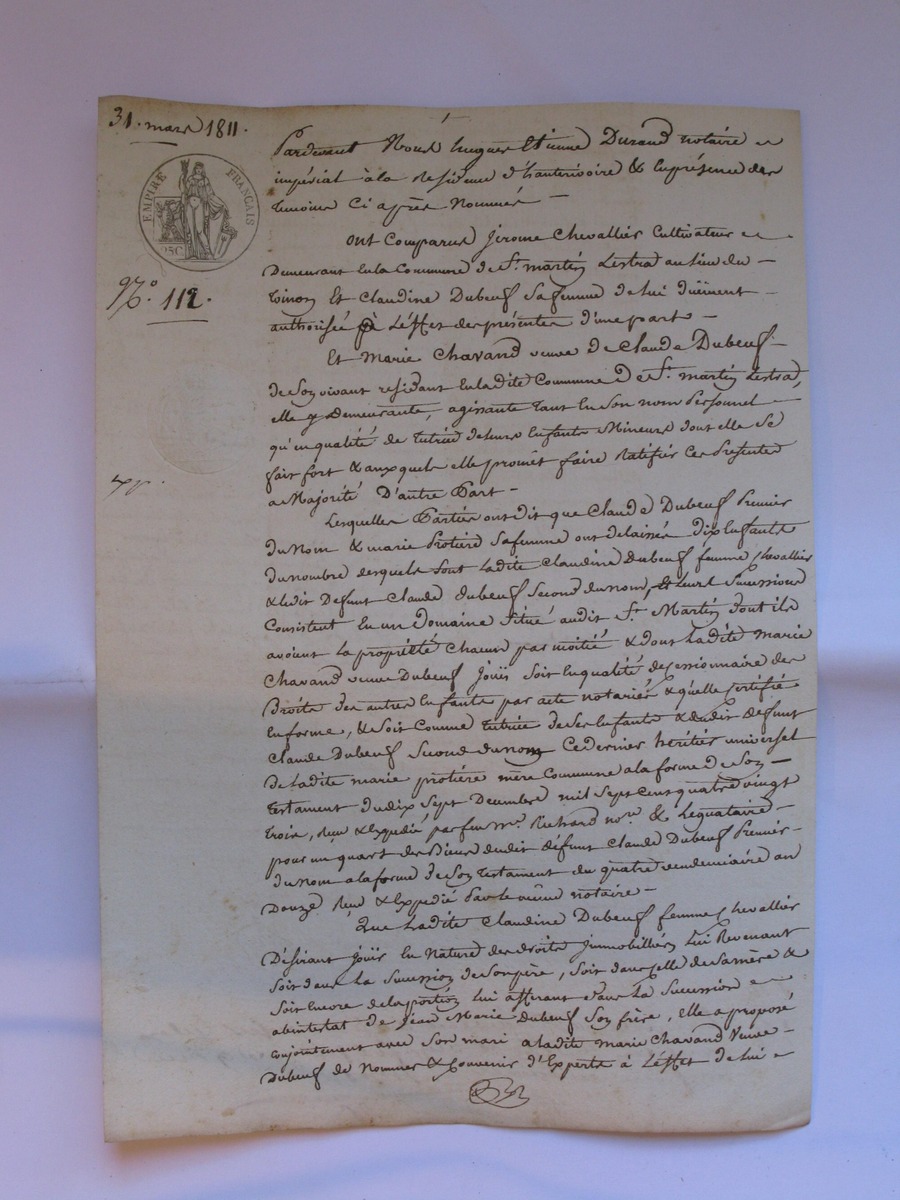 31. mars 1811.
EMPIRE FRANÇAIS
25 C.
N.º 112.
Pardevant Nous hugues Etienne Durand notaire
impérial à la Residence d'hauterivoire & en présence des
temoins Ci après Nommés —
Ont Comparus Jerome Chevallier Cultivateur
Demeurant En la Commune de St. martin Lestra au lieu du —
Et Claudine Dubeuf Sa femme de lui düment —
authorisée à L'effet des présentes d'une part —
Et Marie Chavand veuve de Claude Dubeuf —
de Son vivant residant En la dite Commune de St. martin Lestra,
elle y Demeurante, agissante tant En Son nom Personnel —
qu'en qualité de tutrice de leurs Enfants Mineurs dont elle Se
fait fort & auxquels elle promêt faire Ratifier Ces Presentes
a Majorité D'autre Part —
Lesquelles Parties ont dit que Claude Dubeuf Premier
du Nom & marie Protiere Sa femme ont delaissés dix Enfants
Du nombre desquels Sont Ladite Claudine Dubeuf femme Chevallier
& Ledit Defunt Claude Dubeuf Second du nom, Et Leurs Successions
Consistent En un Domaine Situé audit St. Martin dont ils
avoient La propriété Chacun par moitié & dont Ladite Marie
Chavand veuve Dubeuf Joüis Soit En qualité de Cessionnaire des
Droits des autres Enfants par acte notariés & qu'elle
En forme, & Soit Comme tutrice de Ses Enfants & dudit défunt
Claude Dubeuf Second du nom Ce dernier héritier universel
de Ladite marie protiére mère Commune a la forme de Son —
testament du dix Sept Decembre mil Sept Cent quatre vingt
trois, Reçu & Expedié par feu Mr. Richard nore. & Leguataire —
pour un quart des Biens dudit défunt Claude Dubeuf Premier —
du Nom a la forme de Son testament du quatre vendemiaire an
Douze Reçu & Expedié Par Le même notaire —
Que Ladite Claudine Dubeuf femme Chevallier
Désirant Joüir En Nature des droits Immobilliers Lui Revenant
Soit dans La Succession de Son père, Soit dans Celle de Sa mère &
Soit Encore de la portion Lui afferant dans La Succession
abintestat de Jean Marie Dubeuf Son frère, elle a proposé
Conjointement avec Son mari a Ladite marie Chavand Veuve —
Dubeuf de Nommer & Convenir d'Experts à L'effet de Lui